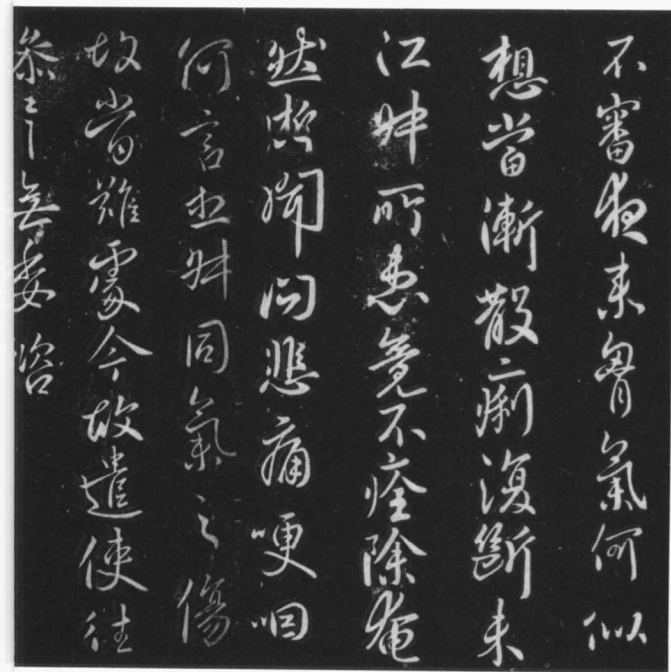 不審夜來胷氣何似
想當漸散痢復斷未
江妹所患竟不痊除奄
然逝闻問悲痛哽咽
何言想妹同氣之傷
故當難處今故遣使往
參之無委容